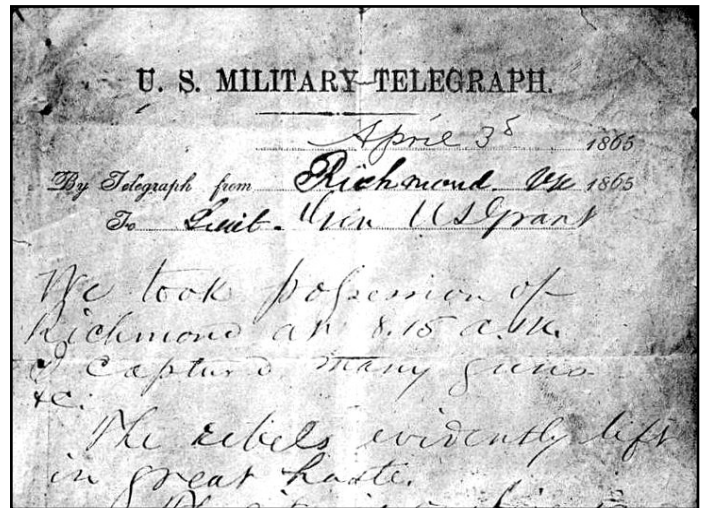 U. S. MILITARY TELEGRAPH.
April 3d 1865
By Telegraph from Richmond. Va 1865
To Lieut. Gen U S Grant
We took possession of
Richmond at 8.15 a.m.
I captured many guns.
&c.
The rebels evidently left
in great haste.